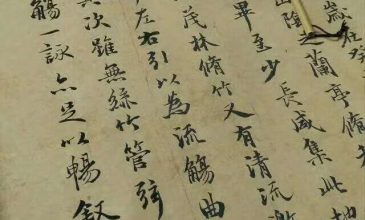 歲在癸
山陰之蘭亭脩
畢至少長咸集此地
茂林脩竹又有清流激
左右引以為流觴曲
其次雖無絲竹管弦
觴一詠亦足以暢敘